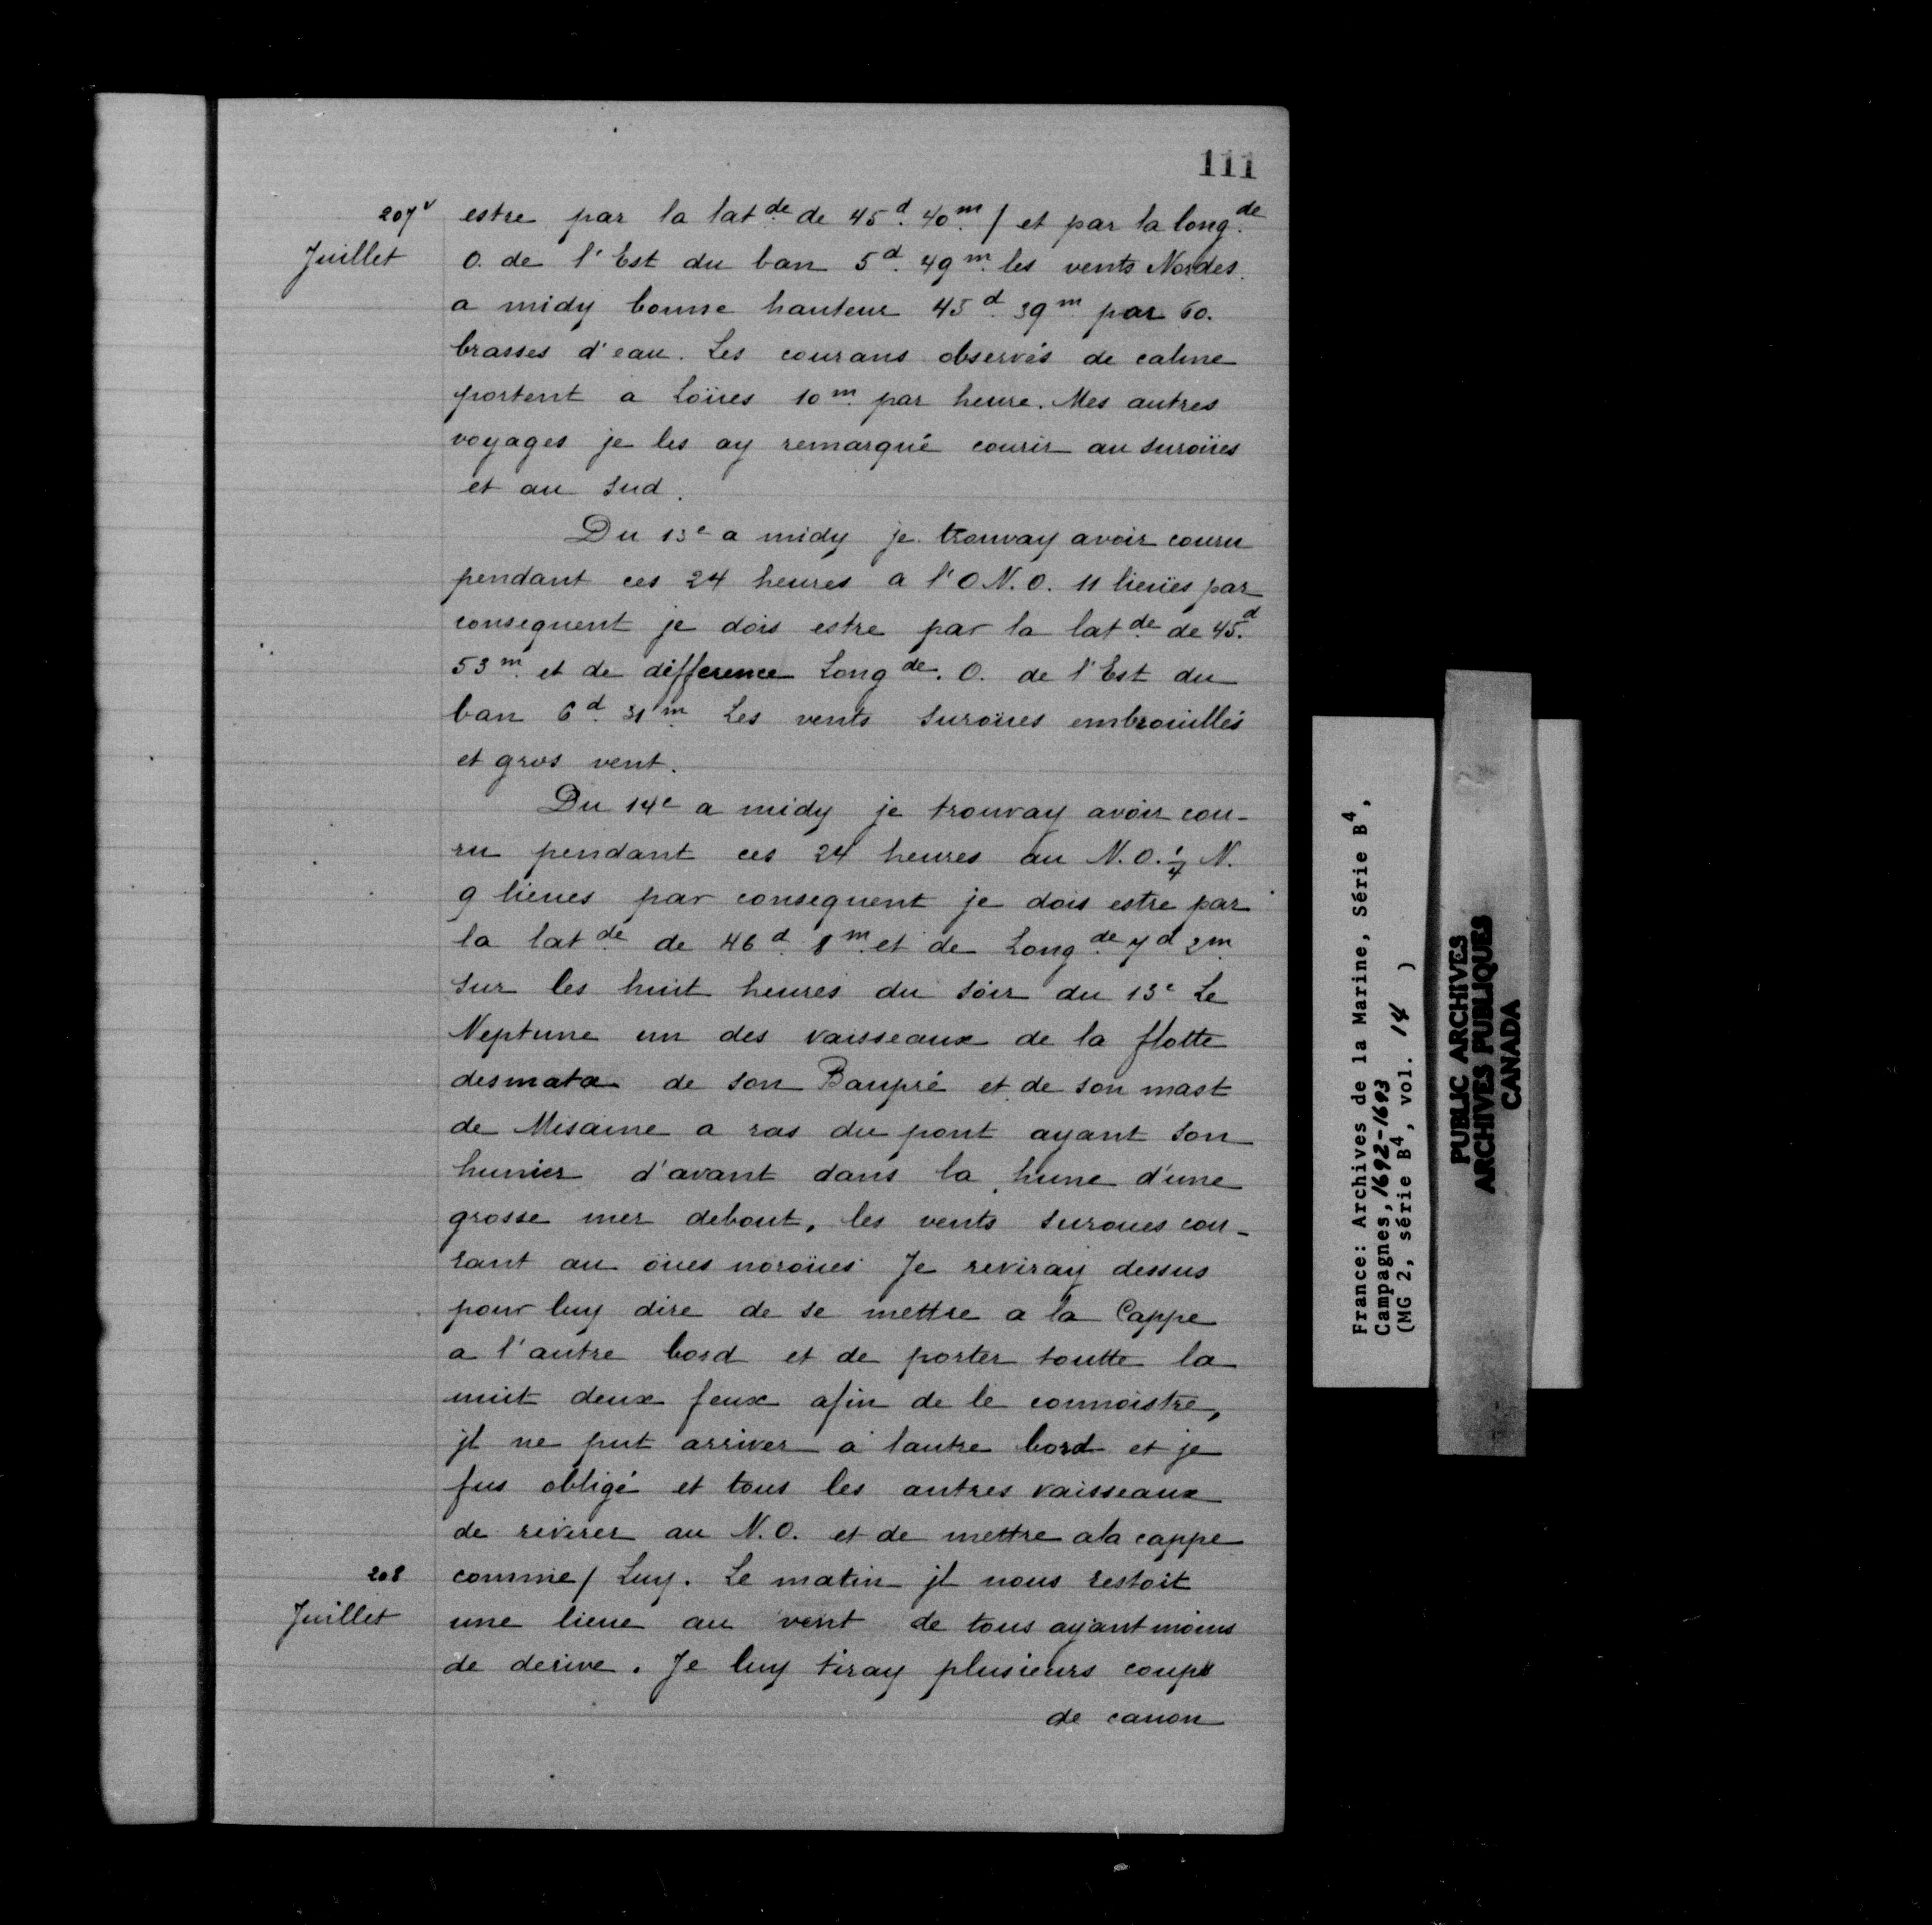 111
207v estre par la lat de. de 45 d. 40 m. / et par la long. de
Juillet O. de l'Est du ban 5 d. 49 m. les vents Nordes.
a midy bonne hauteur 45 d. 39 m. par 60.
brasses d'eau. Les courans observés de calme
portent a Loües 10 m. par heure. Mes autres
voyages je les ay remarqué courir au suroües
et au Sud.
Du 13e a midy je trouvay avoir couru
pendant ces 24 heures a l'O N.O. 11 lieües par
consequent je dois estre par la lat de. de 45. d
53 m. et de difference Long de. O. de l'Est du
ban 6 d. 31 m. Les vents Suroües embroüillés
et gros vent.
Du 14e a midy je trouvay avoir cou-
ru pendant ces 24 heures au N.O. 1/4 N.
9 lieues par consequent je dois estre par
la lat de. de 46 d. 8 m. et de Long de. 7 d 2 m.
Sur les huit heures du soir du 13e Le
Neptune un des vaisseaux de la flotte
desmata de son Baupré et de son mast
de Misaine a ras du pont ayant son
hunier d'avant dans la hune d'une
grosse mer debout, les vents Suroues cou-
rant au oües noroües Je reviray dessus
pour luy dire de se mettre a la Cappe
a l'autre bord et de porter toutte la
nuit deux feux afin de le connoistre,
jl ne put arriver a lautre bord et je
fus obligé et tous les autres vaisseaux
de revirer au N.O. et de mettre ala cappe
208 comme / Luy. Le matin jl nous restoit
Juillet une lieue au vent de tous ayant moins
de derive. Je luy tiray plusieurs coups
de canon
France: Archives de la Marine, Série B4,
Campagnes, 1692-1693
(MG 2, série B4, vol. 14 )
PUBLIC ARCHIVES
ARCHIVES PUBLIQUES
CANADA